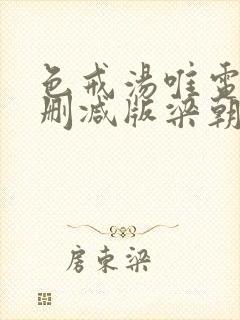 色戒湯唯電
刪減版梁朝
房東梁